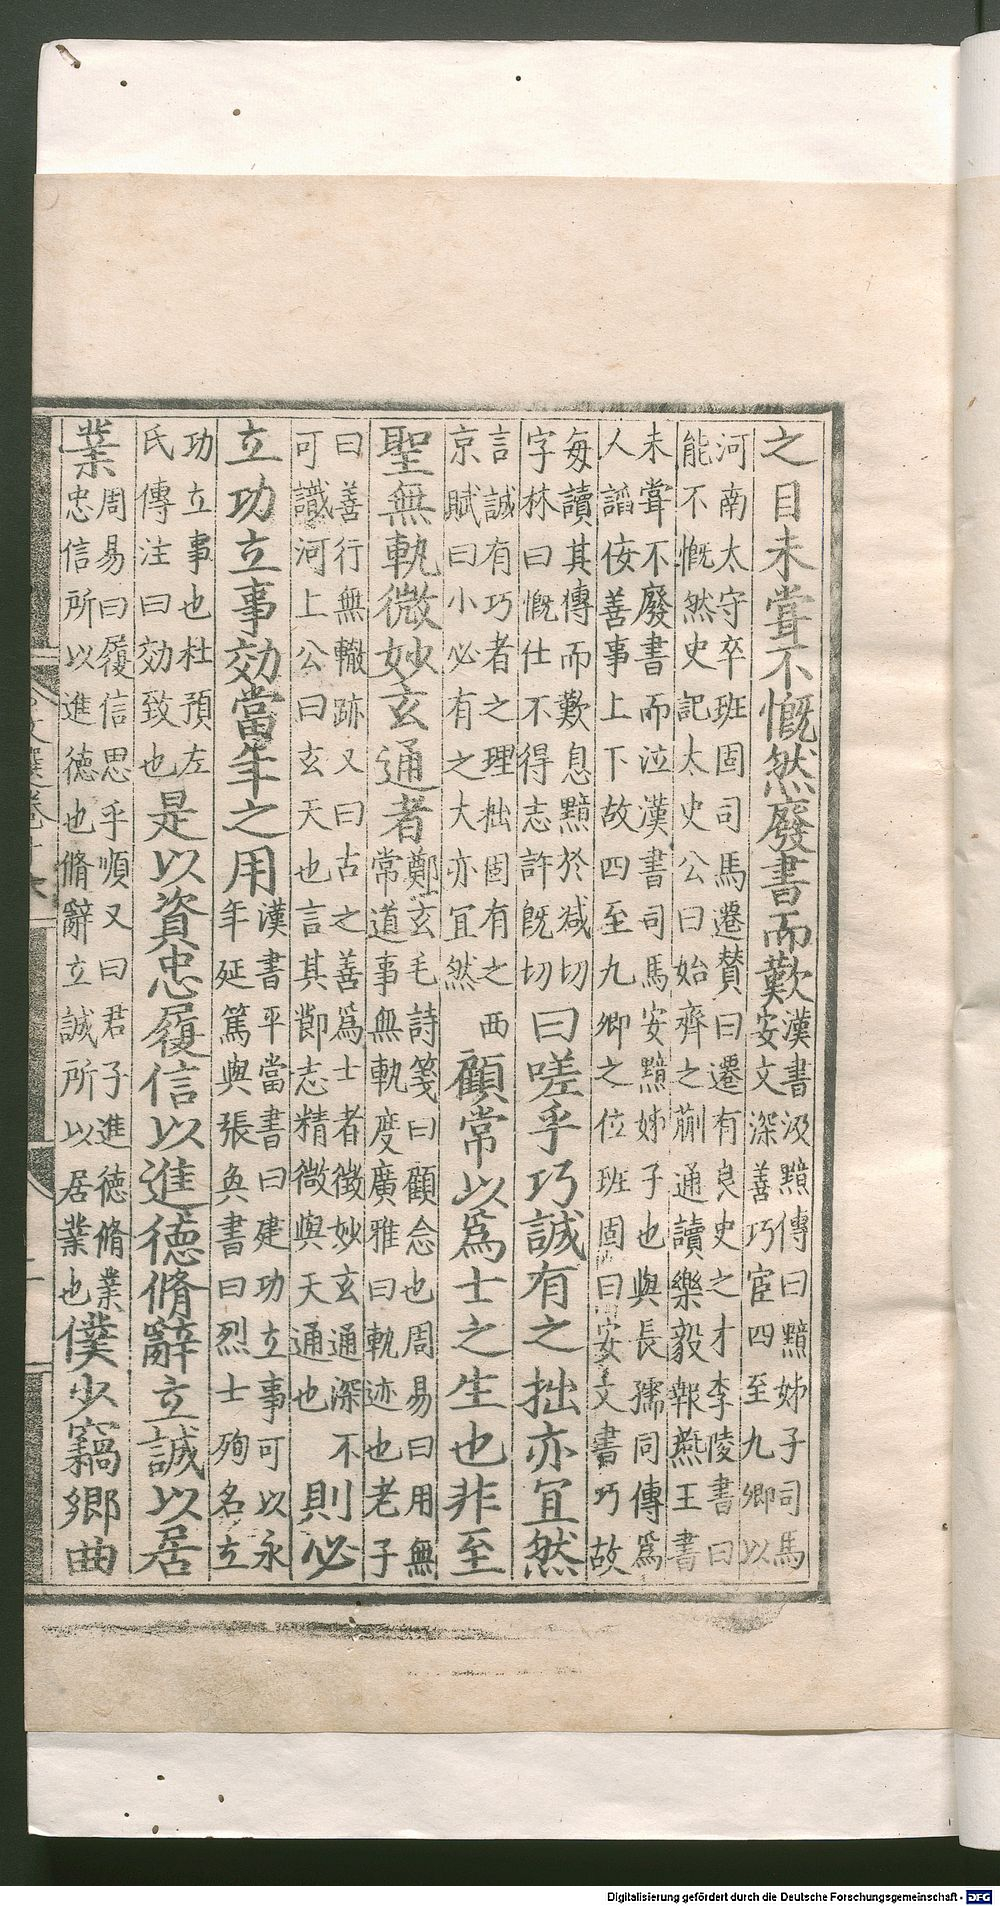 之目未嘗不慨然廢書而歎
漢書汲黯傳曰黯姊子司馬
安文深善巧宦四至九卿以
河南太守卒班固司馬遷賛曰遷有良史之才李陵書曰
能不慨然史記太史公曰始齊之蒯通讀樂毅報燕王書
未嘗不廢書而泣漢書司馬安黯姊子也與長孺同傳爲
人諂佞善事上下故四至九卿之位班固曰安文書巧故
每讀其傳而歎息黯於减切
字林曰慨仕不得志許既切
曰嗟乎巧誠有之拙亦宜然
言誠有巧者之理拙固有之西
京賦曰小必有之大亦宜然
顧常以爲士之生也非至
聖無軌微妙玄通者
鄭玄毛詩箋曰顧念也周易曰用無
常道事無軌度廣雅曰軌迹也老子
曰善行無轍跡又曰古之善爲士者微妙玄通深不
可識河上公曰玄天也言其節志精微與天通也
則必
立功立事効當年之用
漢書平當書曰建功立事可以永
年延篤與張奐書曰烈士殉名立
功立事也杜預左
氏傳注曰効致也
是以資忠履信以進德脩辭立誠以居
業
周易曰履信思乎順又曰君子進德脩業
忠信所以進德也脩辭立誠所以居業也
僕少竊鄉曲
Digitalisierung gefördert durch die Deutsche Forschungsgemeinschaft - DFG